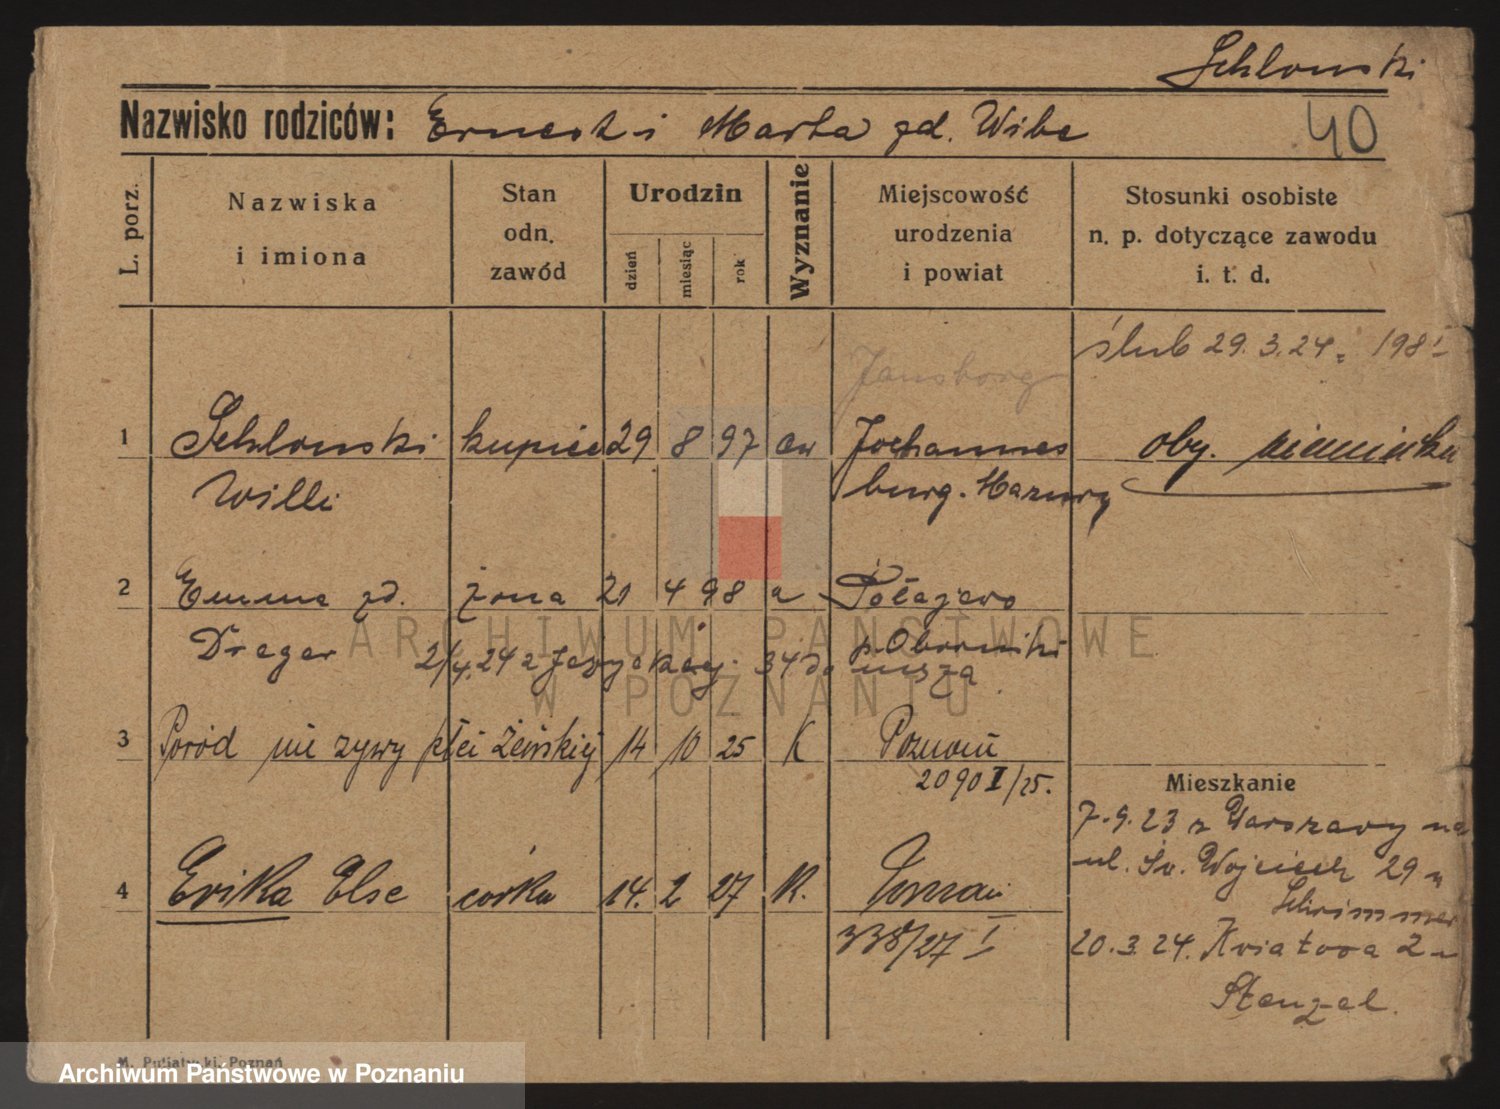 Schlonski
Nazwisko rodziców: Ernest i Marta zd. Wibe
40
L. porz.
Nazwiska
i imiona
Stan
odn.
zawód
Urodzin
dzień
miesiąc
rok
Wyznanie
Miejscowość
urodzenia
i powiat
Stosunki osobiste
n. p. dotyczące zawodu
i. t. d.
ślub 29. 3. 24. 198 I
Jansborg
1 Schlonski kupiec 29 8 97 ew Johannes
Willi burg. Mazury
oby. niemiecka
2 Emma zd. żona 21 4 98 a Połajewo
Dreger p. Oborniki
2/4. 24 z Jeżyckiej 34 do męża
3 Poród nie żywy płci Żeńskiej 14 10 25 K Poznań
2090 I/25.
Mieszkanie
7. 9. 23 z Warszawy na
ul. Św. Wojciech 29 u
Schrimmer
4 Erika Else córka 14. 2 27 K. Poznań
338/27 I
20. 3. 24. Kwiatowa 2 u
Stenzel.
M. Putiatycki, Poznań
ARCHIWUM PAŃSTWOWE
W POZNANIU
Archiwum Państwowe w Poznaniu